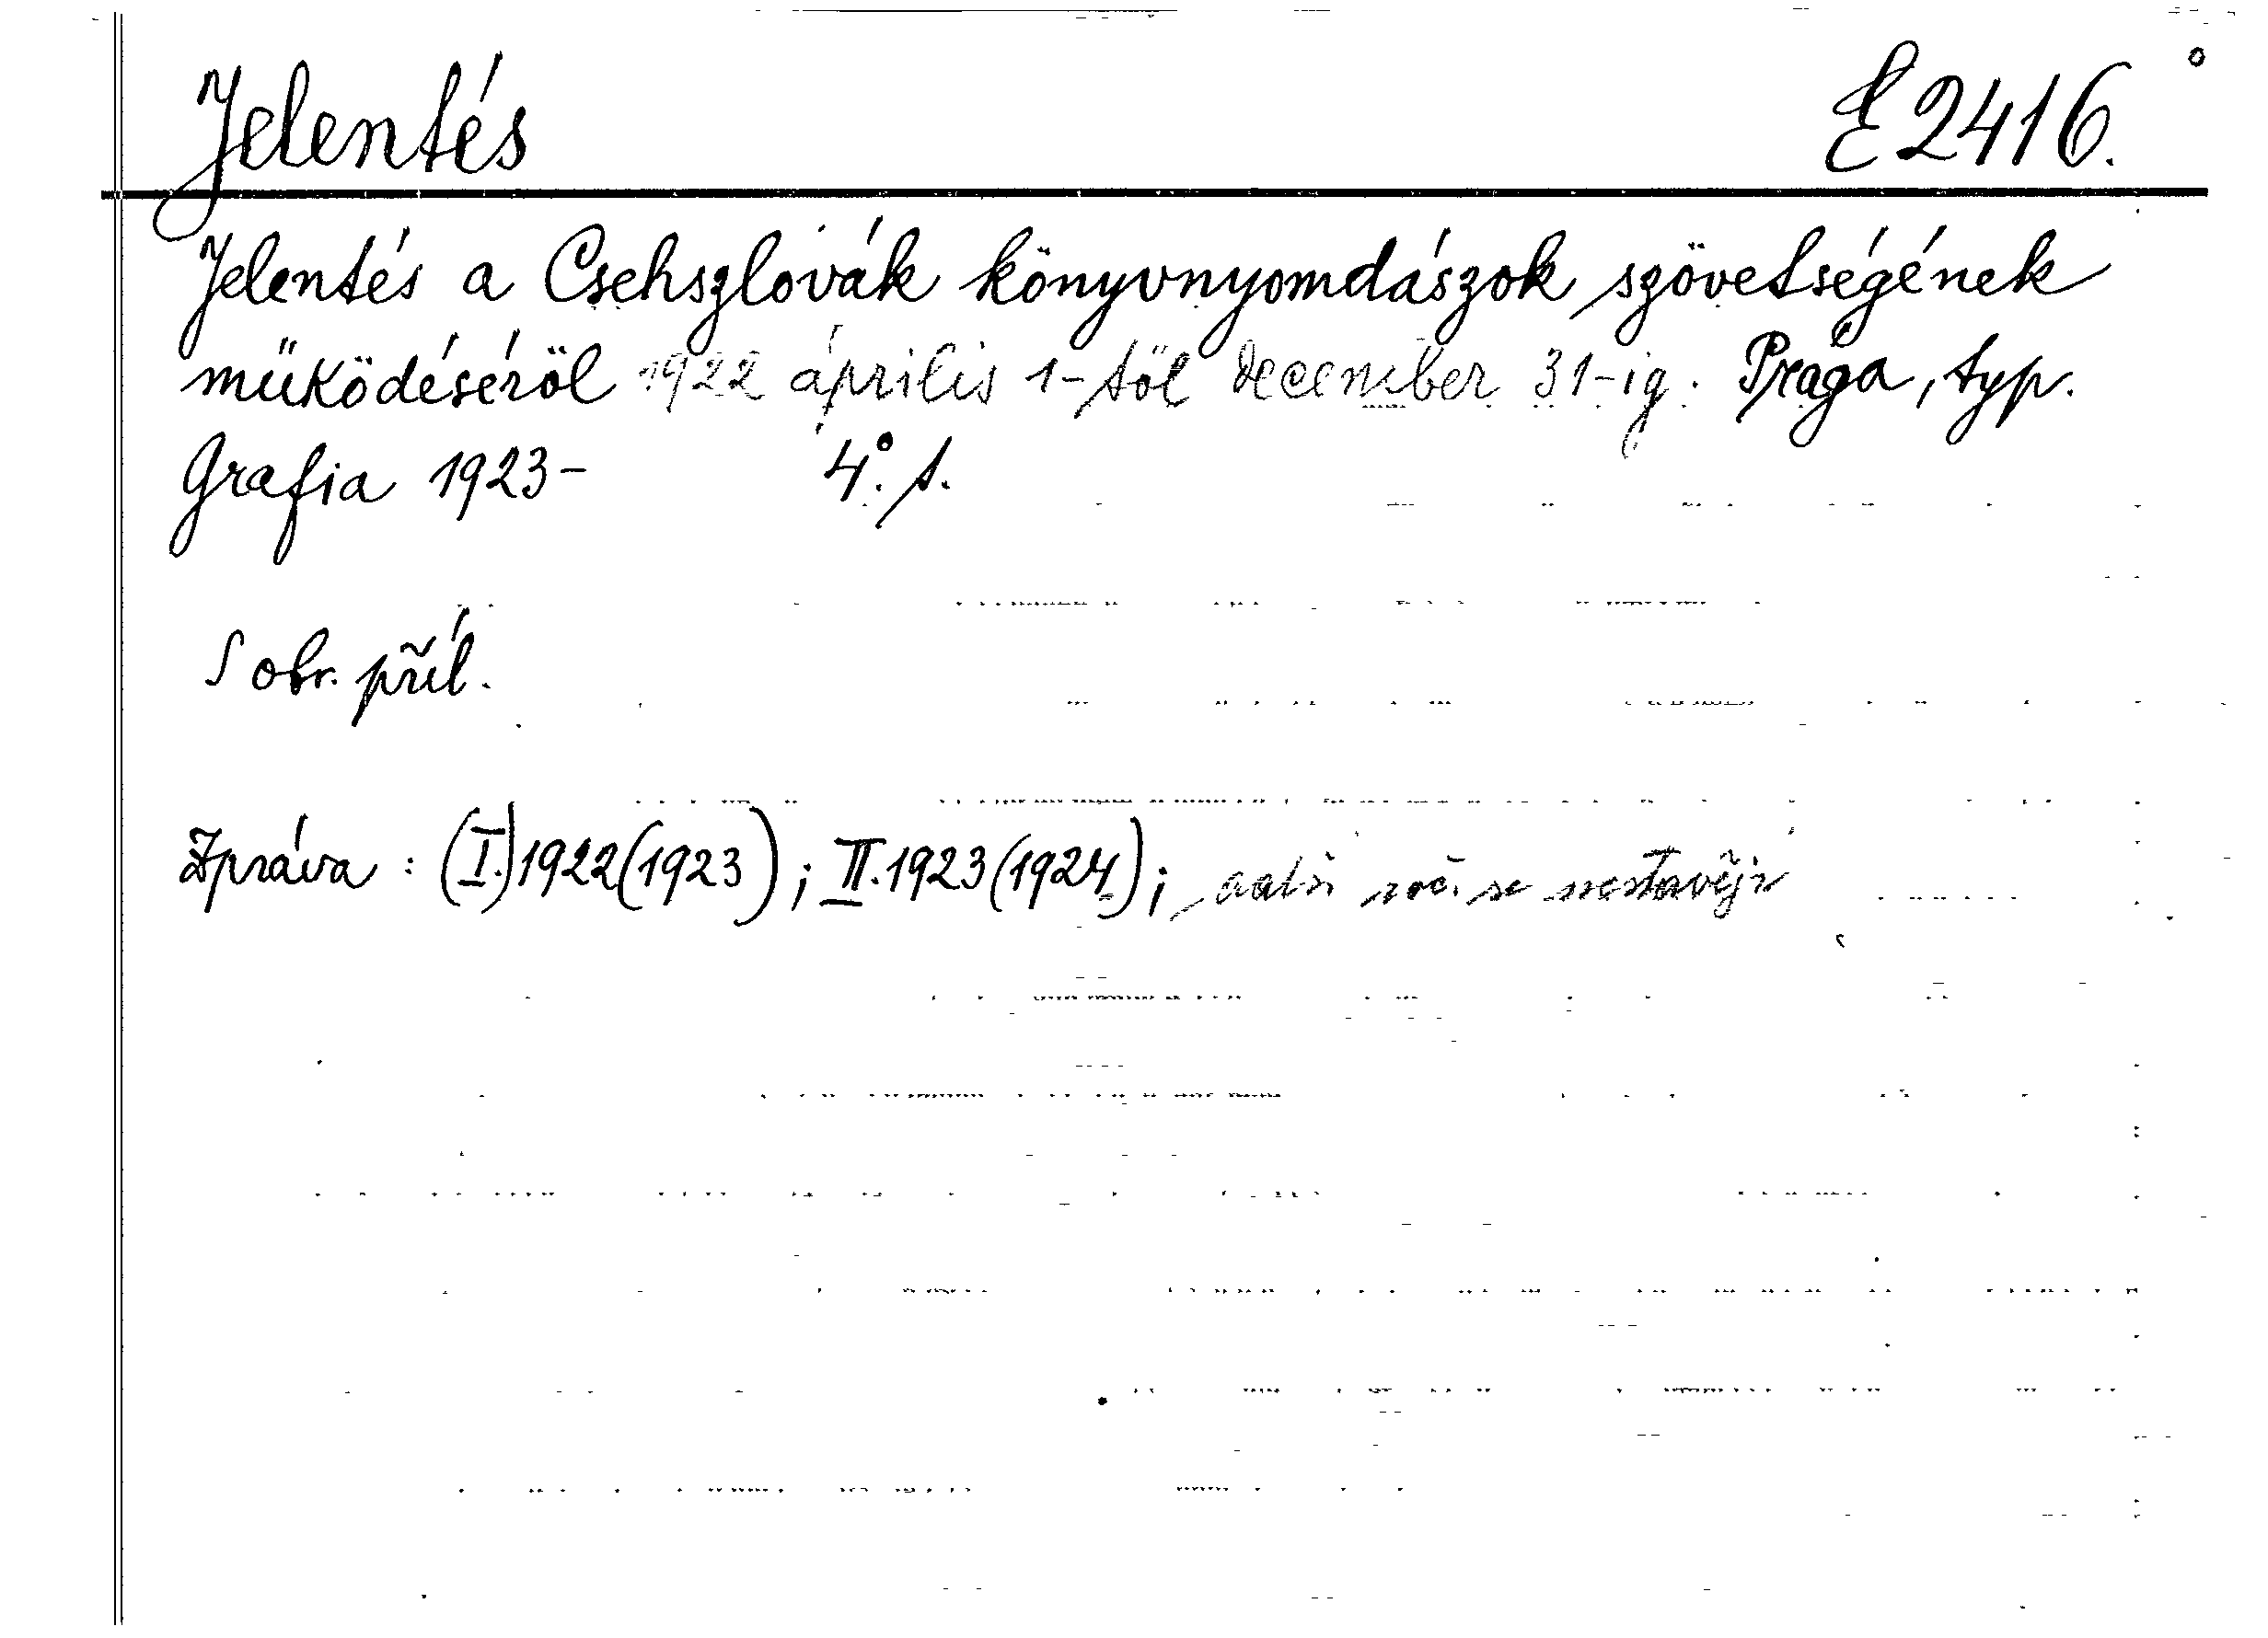 Jelentés E 2416.
Jelentés a Csehszlovák könyvnyomdászok szövetségének
működéséröl 1922 április 1-től december 31-ig. Prága, typ.
Grafia 1923- 4°. s.
S obr. příl.
Zpráva : (I.) 1922 (1923) ; II. 1923 (1924) ; další roč. se nestavějí